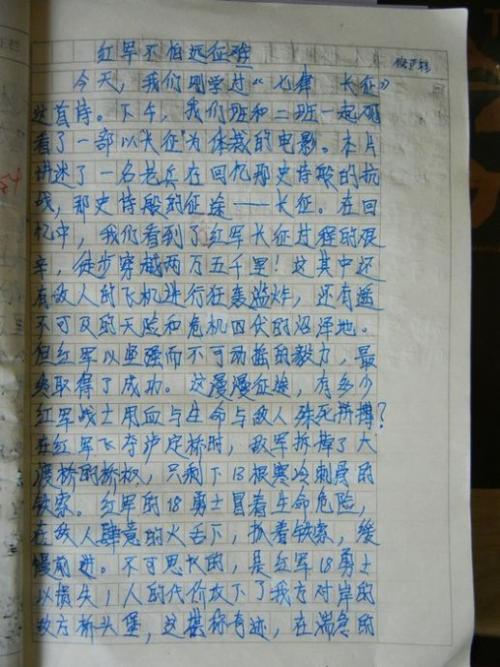 红军不怕远征难
今天，我们刚学过“七律 长征》
这首诗。下午，我们班和二班一起观
看了一部以“长征”为体裁的电影。本片
讲述了一名老兵在回忆那史诗般的抗
战，那史诗般的征途——长征。在回
忆中，我们看到了红军长征过程的艰
辛，徒步穿越两万五千里！这其中还
有敌人的飞机进行狂轰滥炸，还有遥
不可及的天险和危机四伏的沼泽地。
但红军以坚强而不可动摇的毅力，最
终取得了成功。这漫漫征途，有多少
红军战士用血与生命与敌人殊死拼搏？
在红军飞夺泸定桥时，敌军拆掉了大
渡桥的桥板，只剩下13根寒冷刺骨的
铁索。红军的18勇士冒着生命危险，
在敌人肆意的火舌下，抓着铁索，缓
慢前进。不可思议的，是红军18勇士
以损失1人的代价攻下了我方对岸的
敌方桥头堡，这堪称奇迹，在湍急的